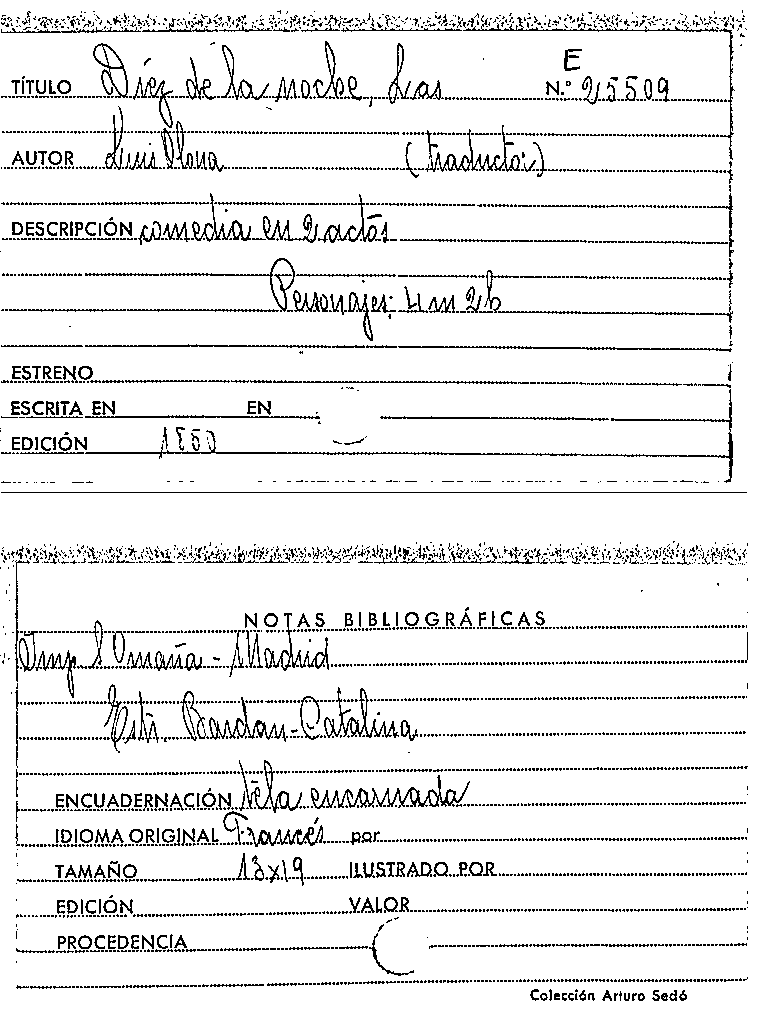 E
TÍTULO Diez de la noche, Las N.° 25509
AUTOR Luis Olona (traductor)
DESCRIPCIÓN comedia en 2 actos
Personajes: 4 m 2 h
ESTRENO
ESCRITA EN EN
EDICIÓN 1850
NOTAS BIBLIOGRÁFICAS
Imp S Omaña - Madrid
Edit. Bardan-Catalina
ENCUADERNACIÓN tela encarnada
IDIOMA ORIGINAL Francés por
TAMAÑO 13x19 ILUSTRADO POR
EDICIÓN VALOR
PROCEDENCIA
Colección Arturo Sedó